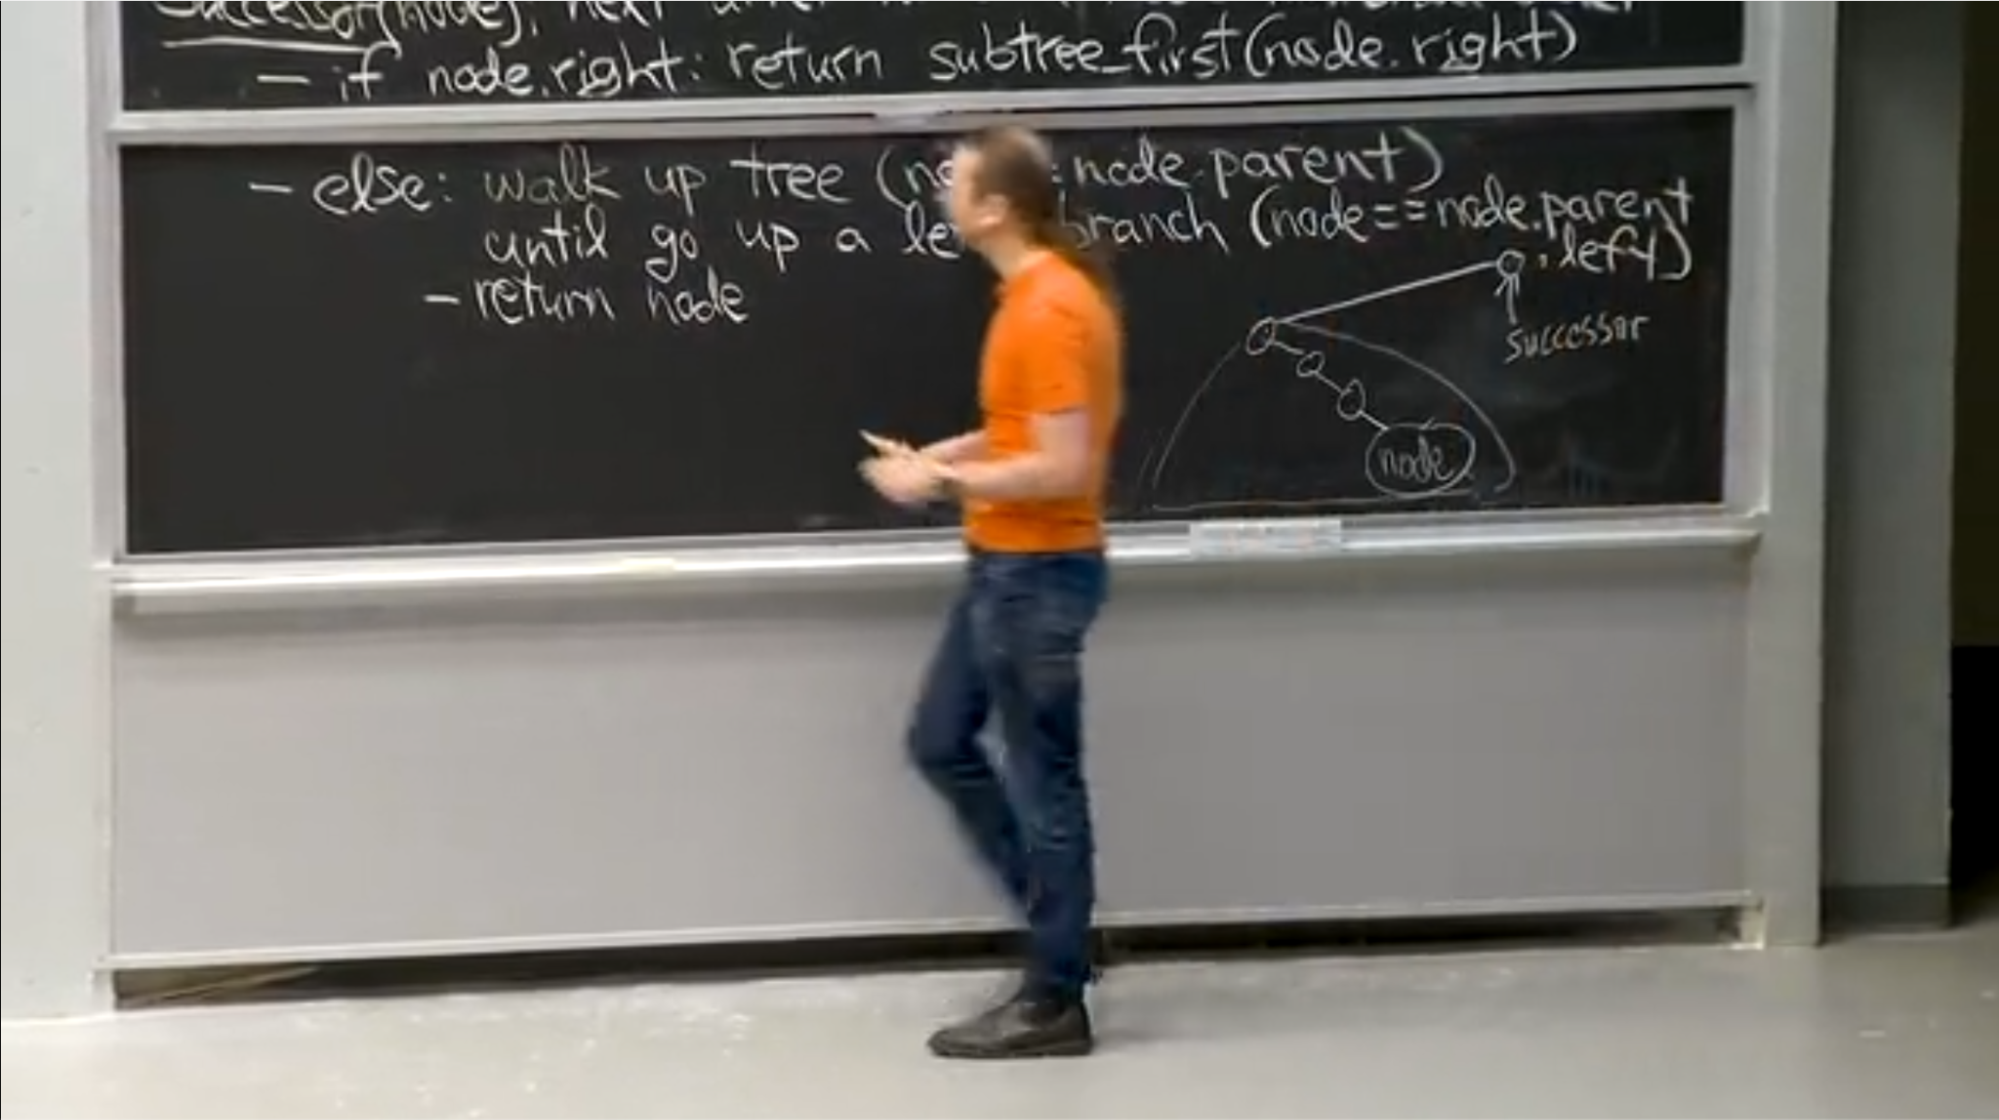 successor(node): next
- if node.right: return subtree_first(node.right)
- else: walk up tree ( = node.parent)
until go up a branch (node==node.parent
.left)
- return node
successor
node